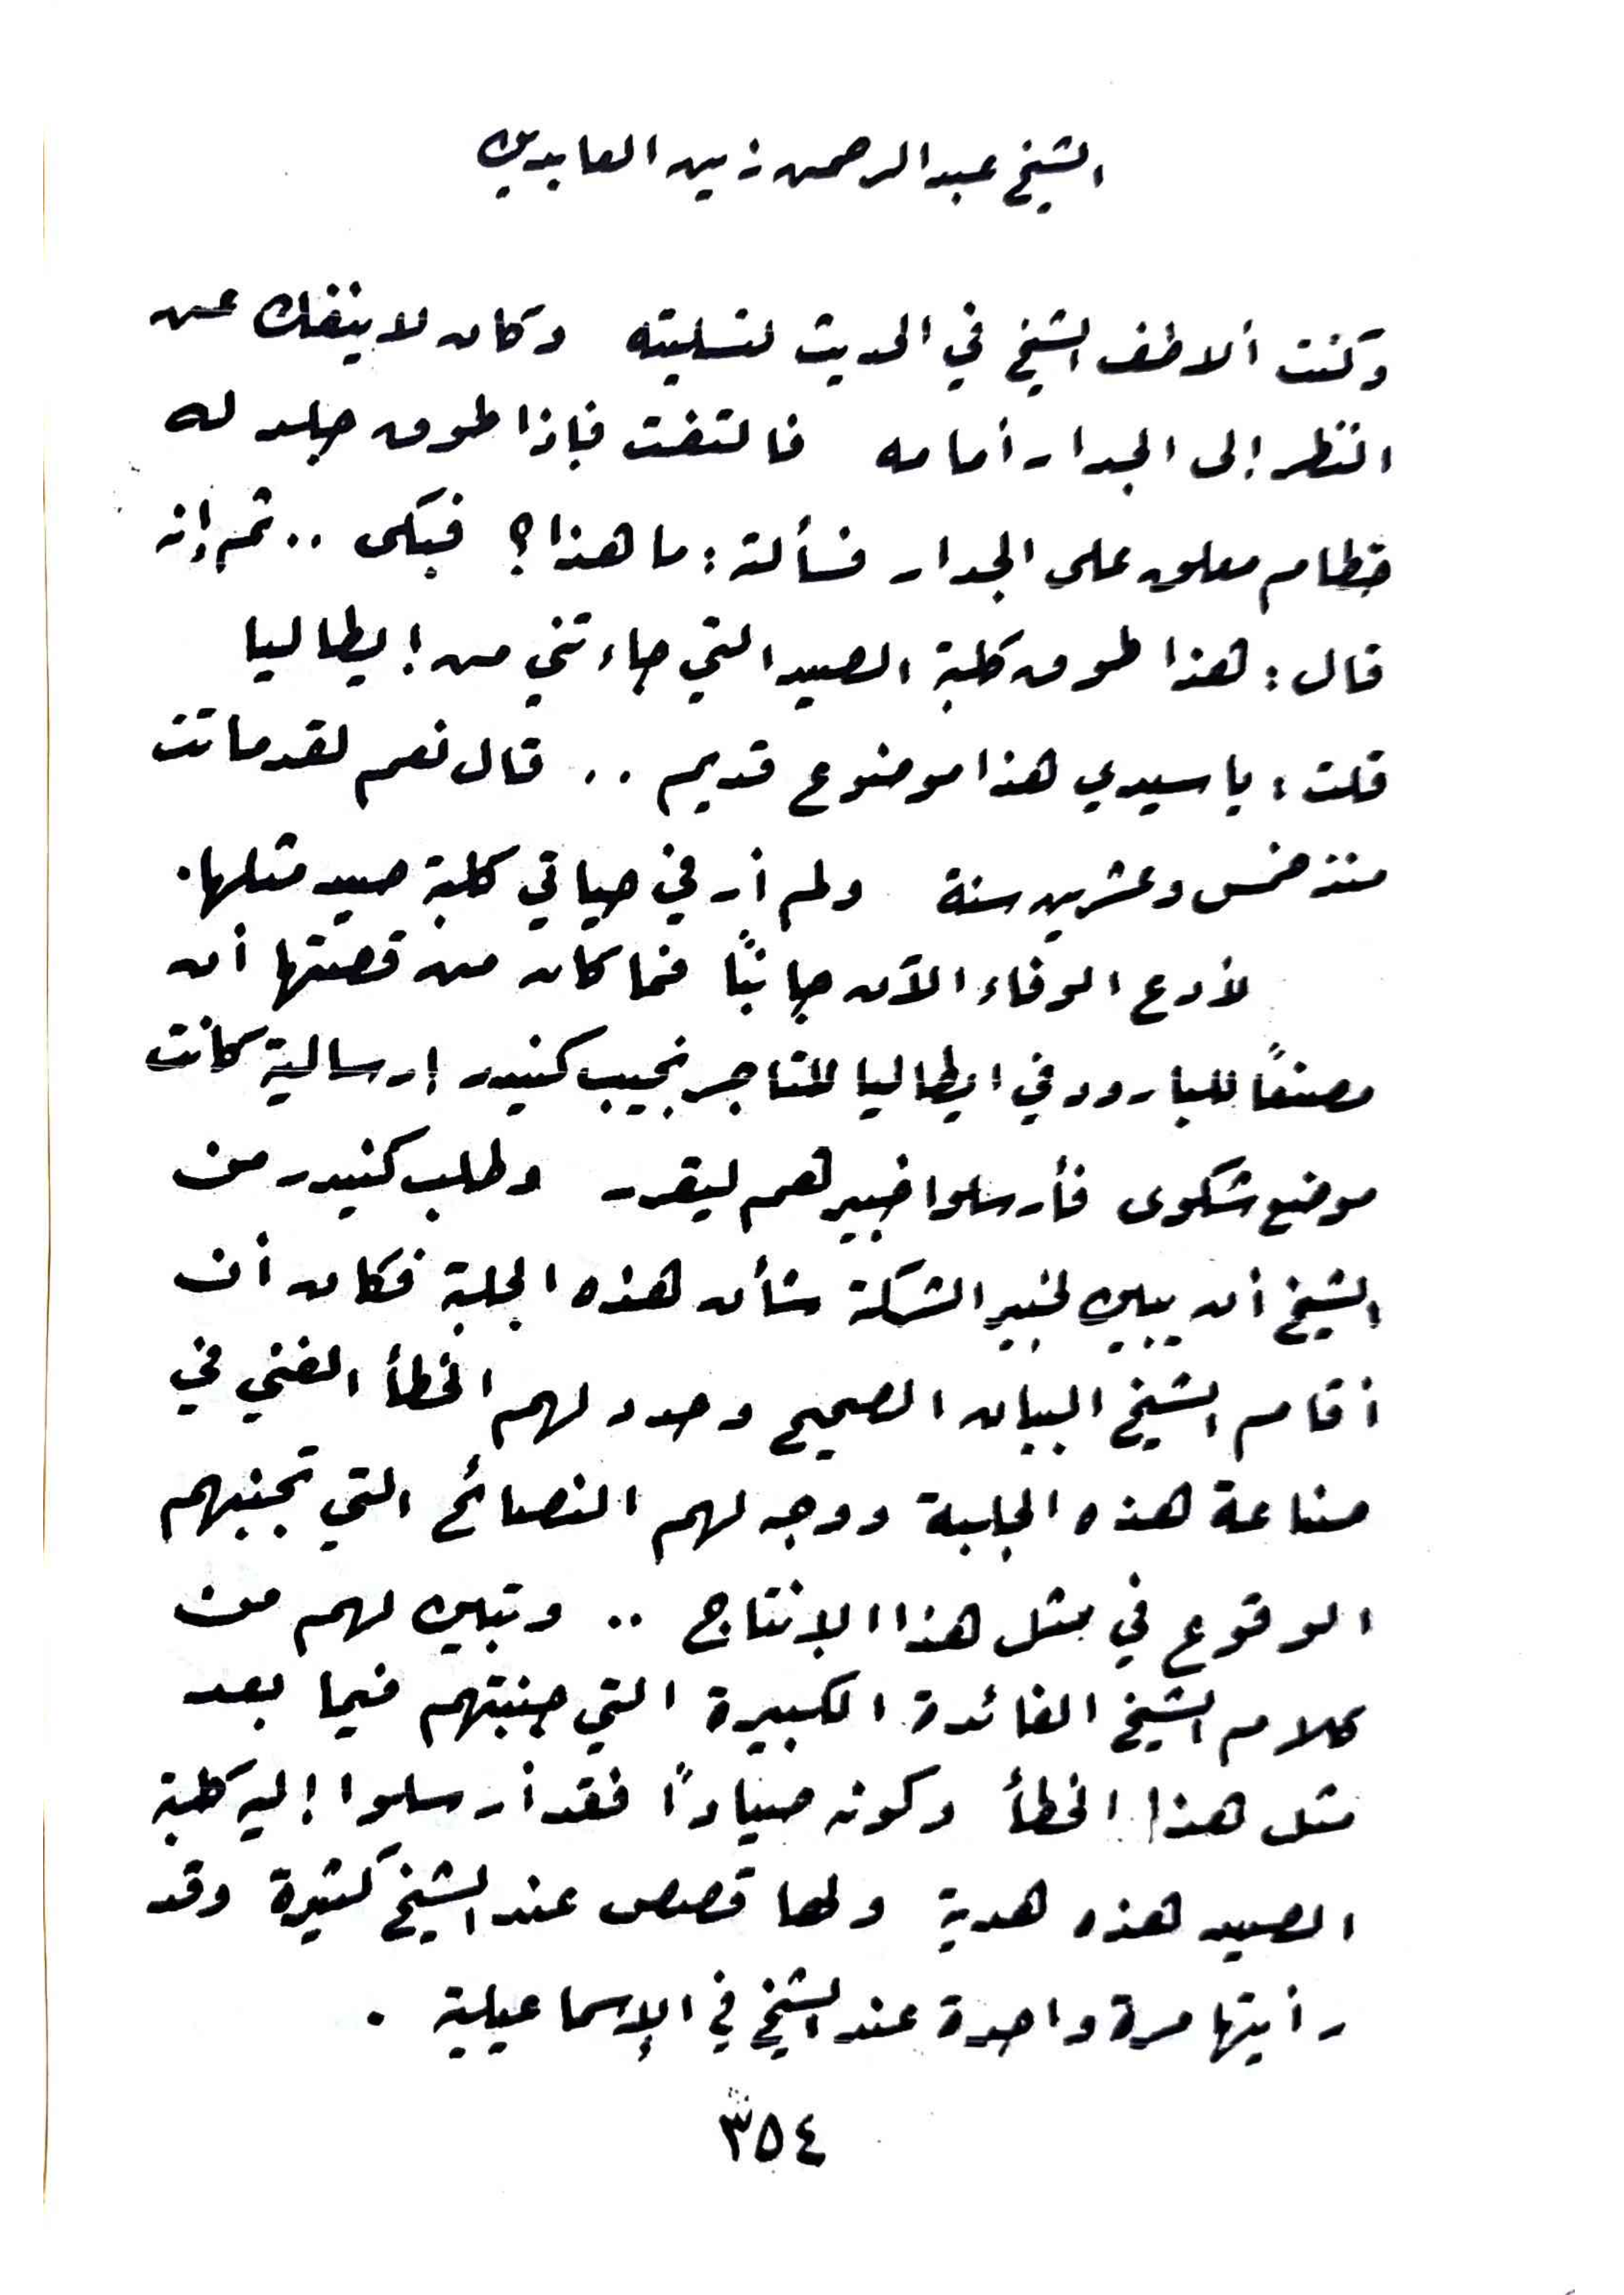 الشيخ عبد الرحمن زين العابدين
وكنت ألاطف الشيخ في الحديث لتسليته وكان لا ينفك عن
النظر إلى الجدار أمامه فالتفت فإذا طوق جلد له
خطام معلق على الجدار فسألته : ما هذا ؟ فبكى .. ثم إنه
قال : هذا طوق كلبة الصيد التي جاءتني من إيطاليا
قلت : يا سيدي هذا موضوع قديم .. قال نعم لقد ماتت
منذ خمس وعشرين سنة ولم أر في حياتي كلبة صيد مثلها .
لأدع الوفاء الآن جانبًا فما كان من قصتها أن
مصنعًا للبارود في ايطاليا للتاجر نجيب كنيدر إرسالية كانت
موضع شكوى فأرسلوا خبيرهم ليقرر وطلب كنيدر من
الشيخ أن يبين لخبير الشركة شأن هذه الجلبة فكان أن
أقام الشيخ البيان الصحيح وحدد لهم الخطأ الفني في
صناعة هذه الجلبة ووجه لهم النصائح التي تجنبهم
الوقوع في مثل هذا الإنتاج .. وتبين لهم من
كلام الشيخ الفائدة الكبيرة التي جنبتهم فيما بعد
مثل هذا الخطأ وكونه صيادًا فقد أرسلوا إليه كلبة
الصيد هذه هدية ولها قصص عند الشيخ كثيرة وقد
رأيتها مرة واحدة عند الشيخ في الإسماعيلية .
٣٥٤